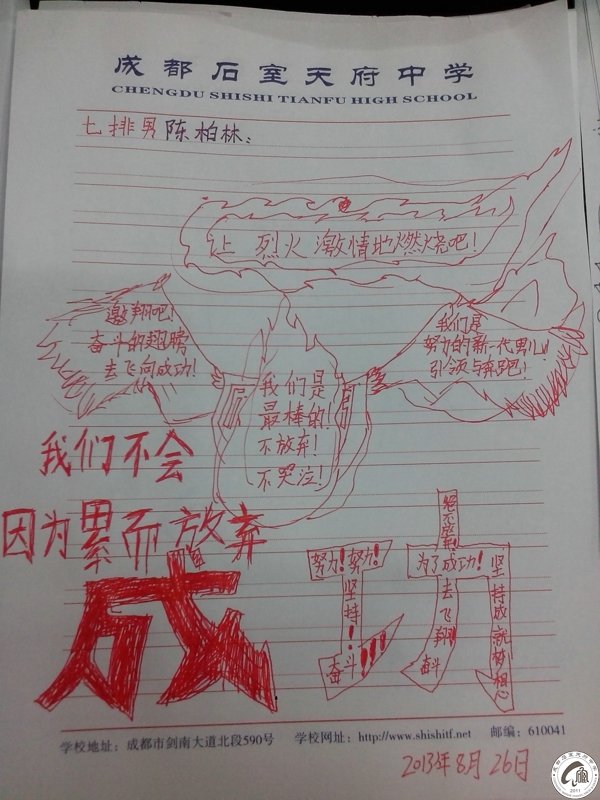 成都石室天府中学
CHENGDU SHISHI TIANFU HIGH SCHOOL
七排男 陈柏林
让 烈火 激情地燃烧吧！
遨翔吧！
奋斗的翅膀
去飞向成功！
我们是
努力的新一代男儿
引领与奔跑！
我们是
最棒的！
不放弃！
不哭泣！
我们不会
因为累而放弃
成功
努力！努力！
坚持！
奋斗！！！
绝不放弃！
为了成功！
去飞翔
奋斗
坚持成就梦想
学校地址：成都市剑南大道北段590号 学校网址：http://www.shishitf.net 邮编：610041
2013年8月26日
2011